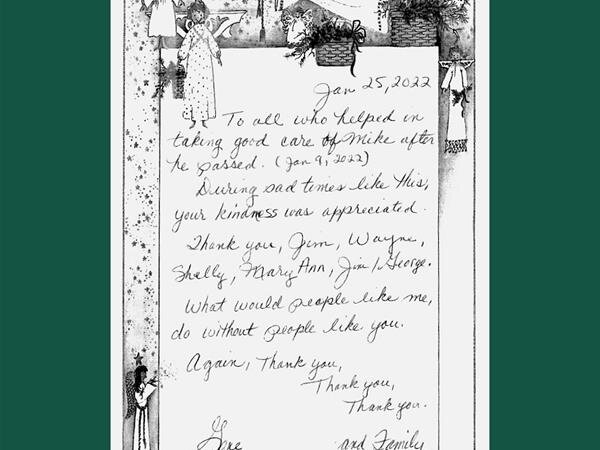 Jan 25, 2022
To all who helped in
taking good care of Mike after
he passed. (Jan 9, 2022)
During sad times like this,
your kindness was appreciated.
Thank you, Jim, Wayne,
Shelly, Mary Ann, Jim, George.
What would people like me,
do without people like you.
Again, Thank you,
Thank you,
Thank you.
Gene and Family